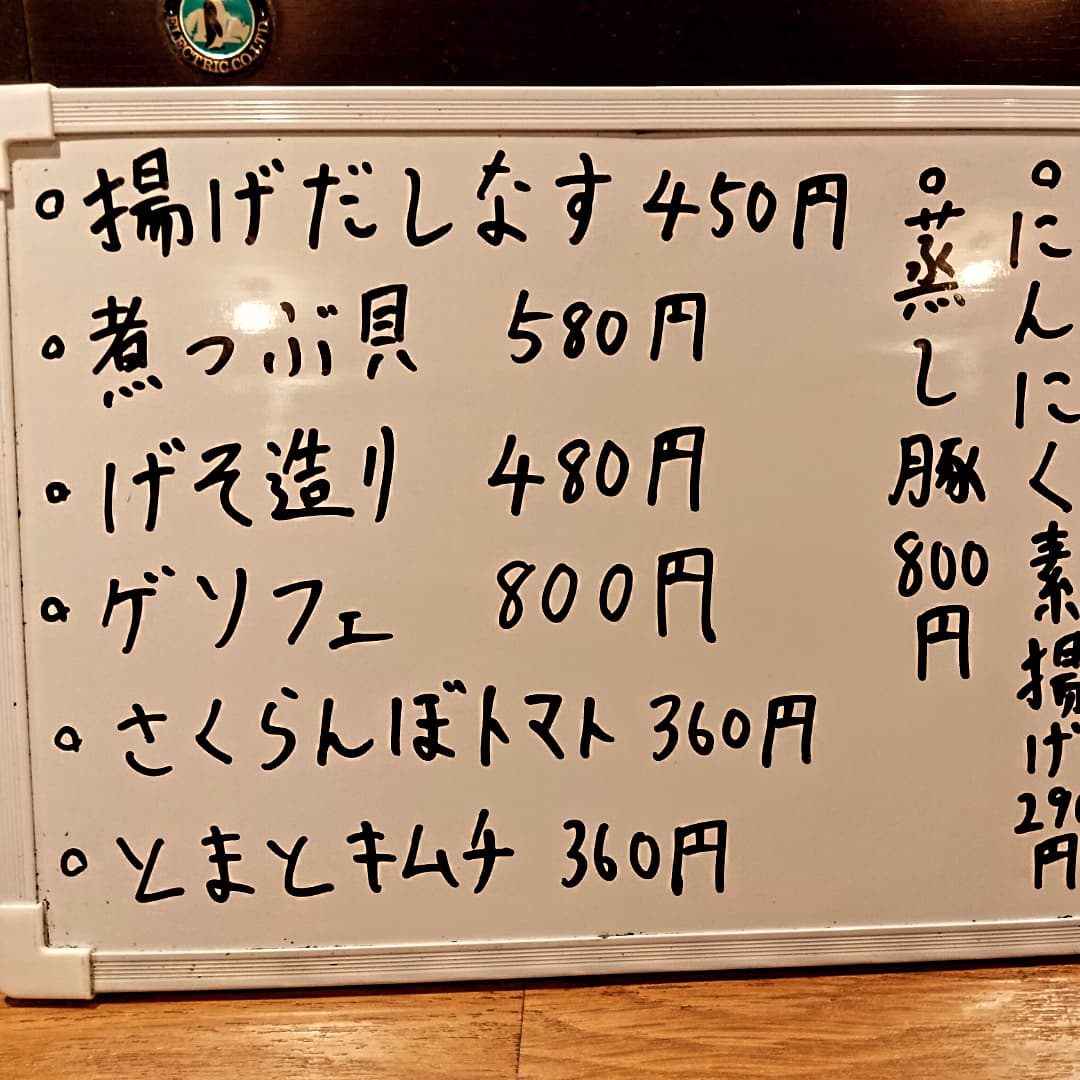 ELECTRIC CO.LTD.
揚げだしなす 450円
煮つぶ貝 580円
げそ造り 480円
ゲソフェ 800円
さくらんぼトマト 360円
とまとキムチ 360円
蒸し豚 800円
にんにく素揚げ 290円